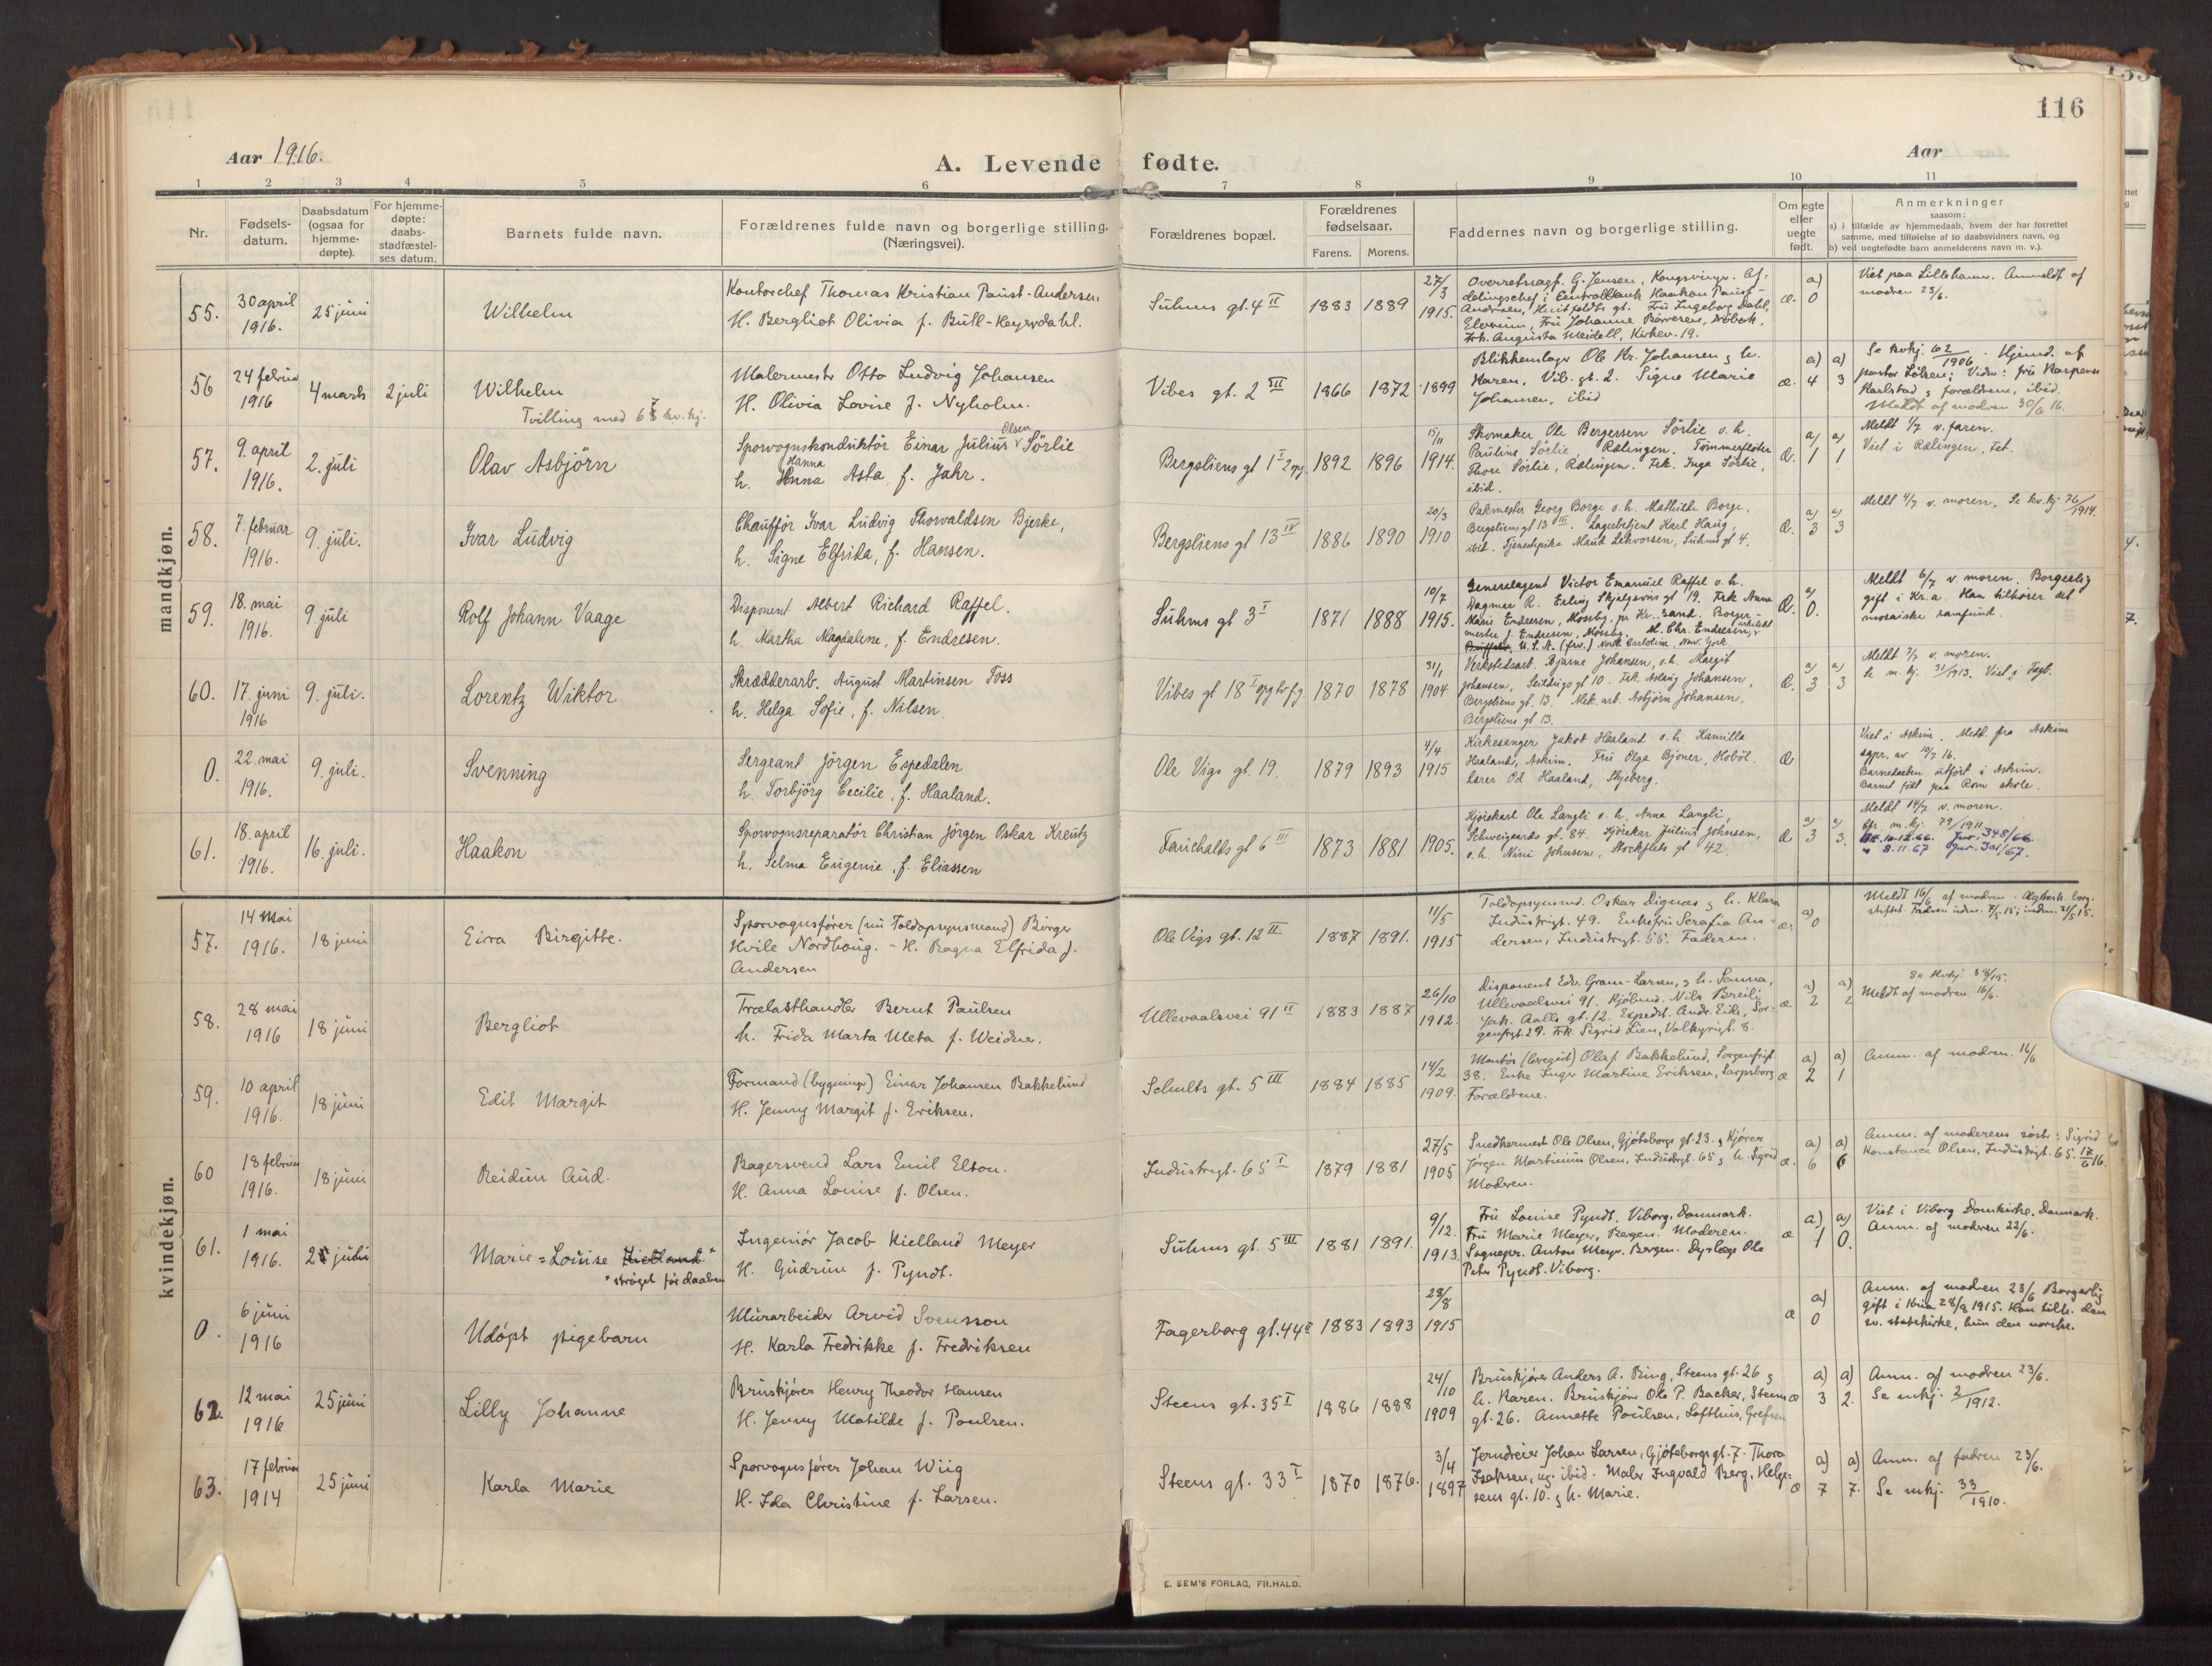 116
Aar 1916.
A. Levende fødte.
Aar
1 2 3 4 5 6 7 8 9 10 11
Nr.
Fødsels-
datum.
Daabsdatum
(ogsaa for
hjemme-
døpte).
For hjemme-
døpte:
daabs-
stadfæstel-
ses datum.
Barnets fulde navn.
Forældrenes fulde navn og borgerlige stilling.
(Næringsvei).
Forældrenes bopæl.
Forældrenes
fødselsaar.
Farens. Morens.
Faddernes navn og borgerlige stilling.
Om egte
eller
uegte
født.
Anmerkninger
saasom:
a) i tilfælde av hjemmedaab, hvem der har forrettet
samme, med tilføielse af to daabsvidners navn, og
b) ved uegtefødte barn anmelderens navn m. v.).
mandkjøn.
55.
30 april
1916.
25 juni
Wilhelm
Kontorchef Thomas Kristian Paust-Andersen
H. Bergliot Olivia f. Bull-Heyerdahl.
Suhms gt. 4 II
1883 1889
27/3
1915.
Overretssagf. G. Jensen, Kongsvinger. Af-
delingschef i Centralbank Haakon Paust-
Andersen, Huitfeldts gt. Fru Ingeborg Dahl,
Elverum, Fru Johanne Børresen, Drøbak,
Frk. Augusta Meidell, Kirkev. 19.
æ.
a)
0
Viet paa Lillehamer. Anmeldt af
modren 23/6.
56
24 februar
1916
4 marts
2 juli
Wilhelm
Tvilling med 67 kv. kj.
Malermester Otto Ludvig Johansen
H. Olivia Lovise f. Nyholm.
Vibes gt. 2 III
1866 1872
1899
Blikkenslager Ole Kr. Johansen & h.
Karen, Vib. gt. 2. Signe Marie
Johansen, ibid
æ.
a) a)
4 3
Se kvkj. 62/1906. Hjemd. af
pastor Løken; Vidn: fru Kaspara
Karlstad & forældrene, ibid.
Meldt af modren 30/6 16.
57.
9. april
1916.
2. juli
Olav Asbjörn
Sporvognskonduktör Einar Julius Olsen Sörlie
h. Hanna Asta, f. Jahr.
Bergsliens gt 1 I 2 opg
1892 1896
15/11
1914.
Skomaker Ole Bergersen Sörlie o. h.
Pauline Sörlie Rælingen. Tömmerflöter
Thore Sörlie, Rælingen. Frk. Inga Sörlie,
ibid.
Æ.
a) a)
1 1
Meldt 1/7 v. faren.
Viet i Rælingen, Fet.
58.
7. februar
1916.
9. juli.
Ivar Ludvig
Chaufför Ivar Ludvig Thorvaldsen Bjerke,
h. Signe Elfrida, f. Hansen.
Bergsliens gt 13 IV
1886 1890
20/3
1910
Pakmester Georg Borge o. h. Mathilde Borge,
Bergsliens gt 13 III. Lagerbetjent Karl Haug,
ibid. Tjenestepike Maud Sekvorsen, Suhms gt 4.
Æ.
a) a)
3 3
Meldt 4/7 v. moren. Se kv. kj 76/1914.
59.
18. mai
1916.
9. juli
Rolf Johann Vaage
Disponent Albert Richard Raffel.
h. Martha Magdalene, f. Endresen.
Suhms gt 3 I
1871 1888
10/7
1915.
Generalagent Victor Emanuel Raffel o. h.
Dagmar R. Erling Skjalgsøns gt 19. Frk Anna
Marie Endresen, Mossby. pr Kr. sand. Borger-
mester J. Endresen, Mossby. M. Chr. Endresen, arkitekt
U. S. A. (frv.) North Carolina, New. York.
Æ.
a)
0.
Meldt 6/7 v. moren. Borgerlig
gift i Kr.a. Han tilhører det
mosaiske samfund.
60.
17. juni
1916
9. juli.
Lorentz Wiktor
Skrædderarb. August Martinsen Foss
h. Helga Sofie, f. Nilsen.
Vibes gt 18 I opg tv. f. g.
1870 1878
31/1
1904
Verkstedsarb. Bjarne Johansen, o. h. Margit
Johansen, Seildugs gt 10. Frk Aslaug Johansen,
Bergsliens gt. 13. Mek. arb. Asbjörn Johansen,
Bergsliens gt 13.
Æ.
a) a)
3 3
Meldt 7/7 v. moren.
Se m. kj. 31/1913. Viet i Fagb.
0.
22. mai
1916.
9. juli.
Svenning
Sergeant Jörgen Espedalen
h. Torbjörg Cecilie, f. Haaland.
Ole Vigs gt. 19.
1879 1893
4/4
1915
Kirkesanger Jakob Haaland o. h. Kamilla
Haaland, Askim. Fru Olga Bjoner, Hobøl.
Lærer Od Haaland, Skjeberg.
Æ
Viet i Askim. Meldt fra Askim
sgpr. av 10/7 16.
Barnedaaben utført i Askim.
Barnet født paa Rom skole.
61.
18. april
1916.
16. juli.
Haakon
Sporvognsreparatör Christian Jörgen Oskar Kreutz
h. Selma Eugenie, f. Eliassen
Fauchalds gt 6 III
1873 1881
1905.
Kjörekarl Ole Langli o. h. Anna Langli,
Schweigaards gt. 84. Kjörekar Julius Johnsen,
o. h. Nini Johnsen, Stockflets gt 42.
Æ
a) a)
3 3.
Meldt 14/7 v. moren.
Cfr. m. kj. 79/1911.
Att. 10.12.66. Jnr. 348/66.
" 8.11.67 Jnr. 301/67.
kvindekjøn.
57.
14 Mai
1916.
18 juni
Eira Birgitte.
Sporvognsfører (nu Toldopsynsmand) Birger
Hvile Nordhaug. - H. Ragna Elfrida f.
Andersen
Ole Vigs gt. 12 II
1887 1891.
11/5
1915
Toldopsynsmd. Oskar Dignæs & h. Klara
Industrigt. 49. Enkefru Serafia An-
dersen, Industrigt. 55. Faderen.
æ.
a)
0
Meldt 16/6 af modren. Ægtesk. borg.
stiftet.
58.
28 mai
1916
18 juni
Bergliot
Trælasthandler Bernt Paulsen
h. Frida Marta Meta f. Weidne.
Ullevaalsvei 91 II
1883 1887
26/10
1912.
Disponent Edv. Gram-Larsen, & h. Sanna,
Ullevaalsvei 91. Kjøbmd. Nils Breili
Jak. Aalls gt. 12. Expedit. Andr. Eik, Sor-
genfrigt. 29. Frk. Sigrid Lien, Valkyrigt. 8.
æ
a) a)
2 2
Se kvkj. 58/15.
Meldt af modren 16/6.
59.
10 april
1916.
18 juni
Edit Margit
Formand (bygnings) Einar Johansen Bakkelund
H. Jenny Margit f. Eriksen.
Schults gt. 5 III
1884 1885
14/2
1909.
Montør Olaf Bakkelund, Sorgenfrigt
38. Enke Inger Martine Eriksen, Sarpsborg
Forældrene.
æ
a) a)
2 1
Anm. af modren. 16/6
60
18 februar
1916.
18 juni
Reidun Aud.
Bagersvend Lars Emil Elton.
H. Anna Louise f. Olsen.
Industrigt. 65 I
1879 1881
27/5
1905
Snedkermest Ole Olsen, Gjøteborgs gt. 23. & Kjører
Jørgen Martinius Olsen, Industrigt. 65 & h. Sigrid
Modren.
æ.
a) a)
6 6
Anm. af moderens søster: Sigrid
Konstance Olsen, Industrigt. 65. 17/6 16.
61.
1 mai
1916.
2 juli
Marie=Louise Kielland*
* strøget før daaben
Ingeniør Jacob Kielland Meyer
H. Gudrun f. Pyndt.
Suhms gt. 5 III
1881 1891.
9/12.
1913
Fru Louise Pyndt, Viborg, Danmark.
Fru Marie Meyer, Bergen. Moderen.
Sognepr. Anton Meyer. Bergen. Dyrlæge Ole
Peter Pyndt. Viborg.
æ
a) a)
1 0.
Viet i Viborg Domkirke, Danmark.
Anm. af modren 22/6.
0.
6 juni
1916
Udöpt pigebarn
Murarbeider Arvid Svensson
H. Karla Fredrikke f. Fredriksen
Fagerborg gt. 44 II
1883 1893
28/8
1915
æ
a)
0
Anm. af modren 23/6 Borgerlig
gift i Kria 28/8 1915. Han tilh. den
sv. statskirke, hun den norske.
62.
12 mai
1916
25 juni
Lilly Johanne
Bruskjører Henry Theodor Hansen
H. Jenny Matilde f. Poulsen.
Steens gt. 35 I
1886 1888
24/10
1909
Bruskjører Anders A. Ring, Steens gt. 26 &
h. Karen. Bruskjøre Ole P. Backer, Steens
gt. 26. Annette Poulsen, Lofthus, Grefsen
æ
a) a)
3 2.
Anm. af modren 23/6.
Se mkj. 2/1912.
63.
17 februar
1914
25 juni
Karla Marie
Sporvognsfører Johan Wiig
H. Ida Christine f. Larsen.
Steens gt. 33 I
1870 1876.
3/4
1897
Jerndreier Johan Larsen, Gjøteborgs gt. 7. Thora
Isaksen, ug. ibid. Maler Ingvald Berg, Helge-
sens gt. 10. & h. Marie.
æ
a) a)
7 7.
Anm. af fadren 23/6.
Se mkj. 33/1910.
E. SEM'S FORLAG, FR.HALD.